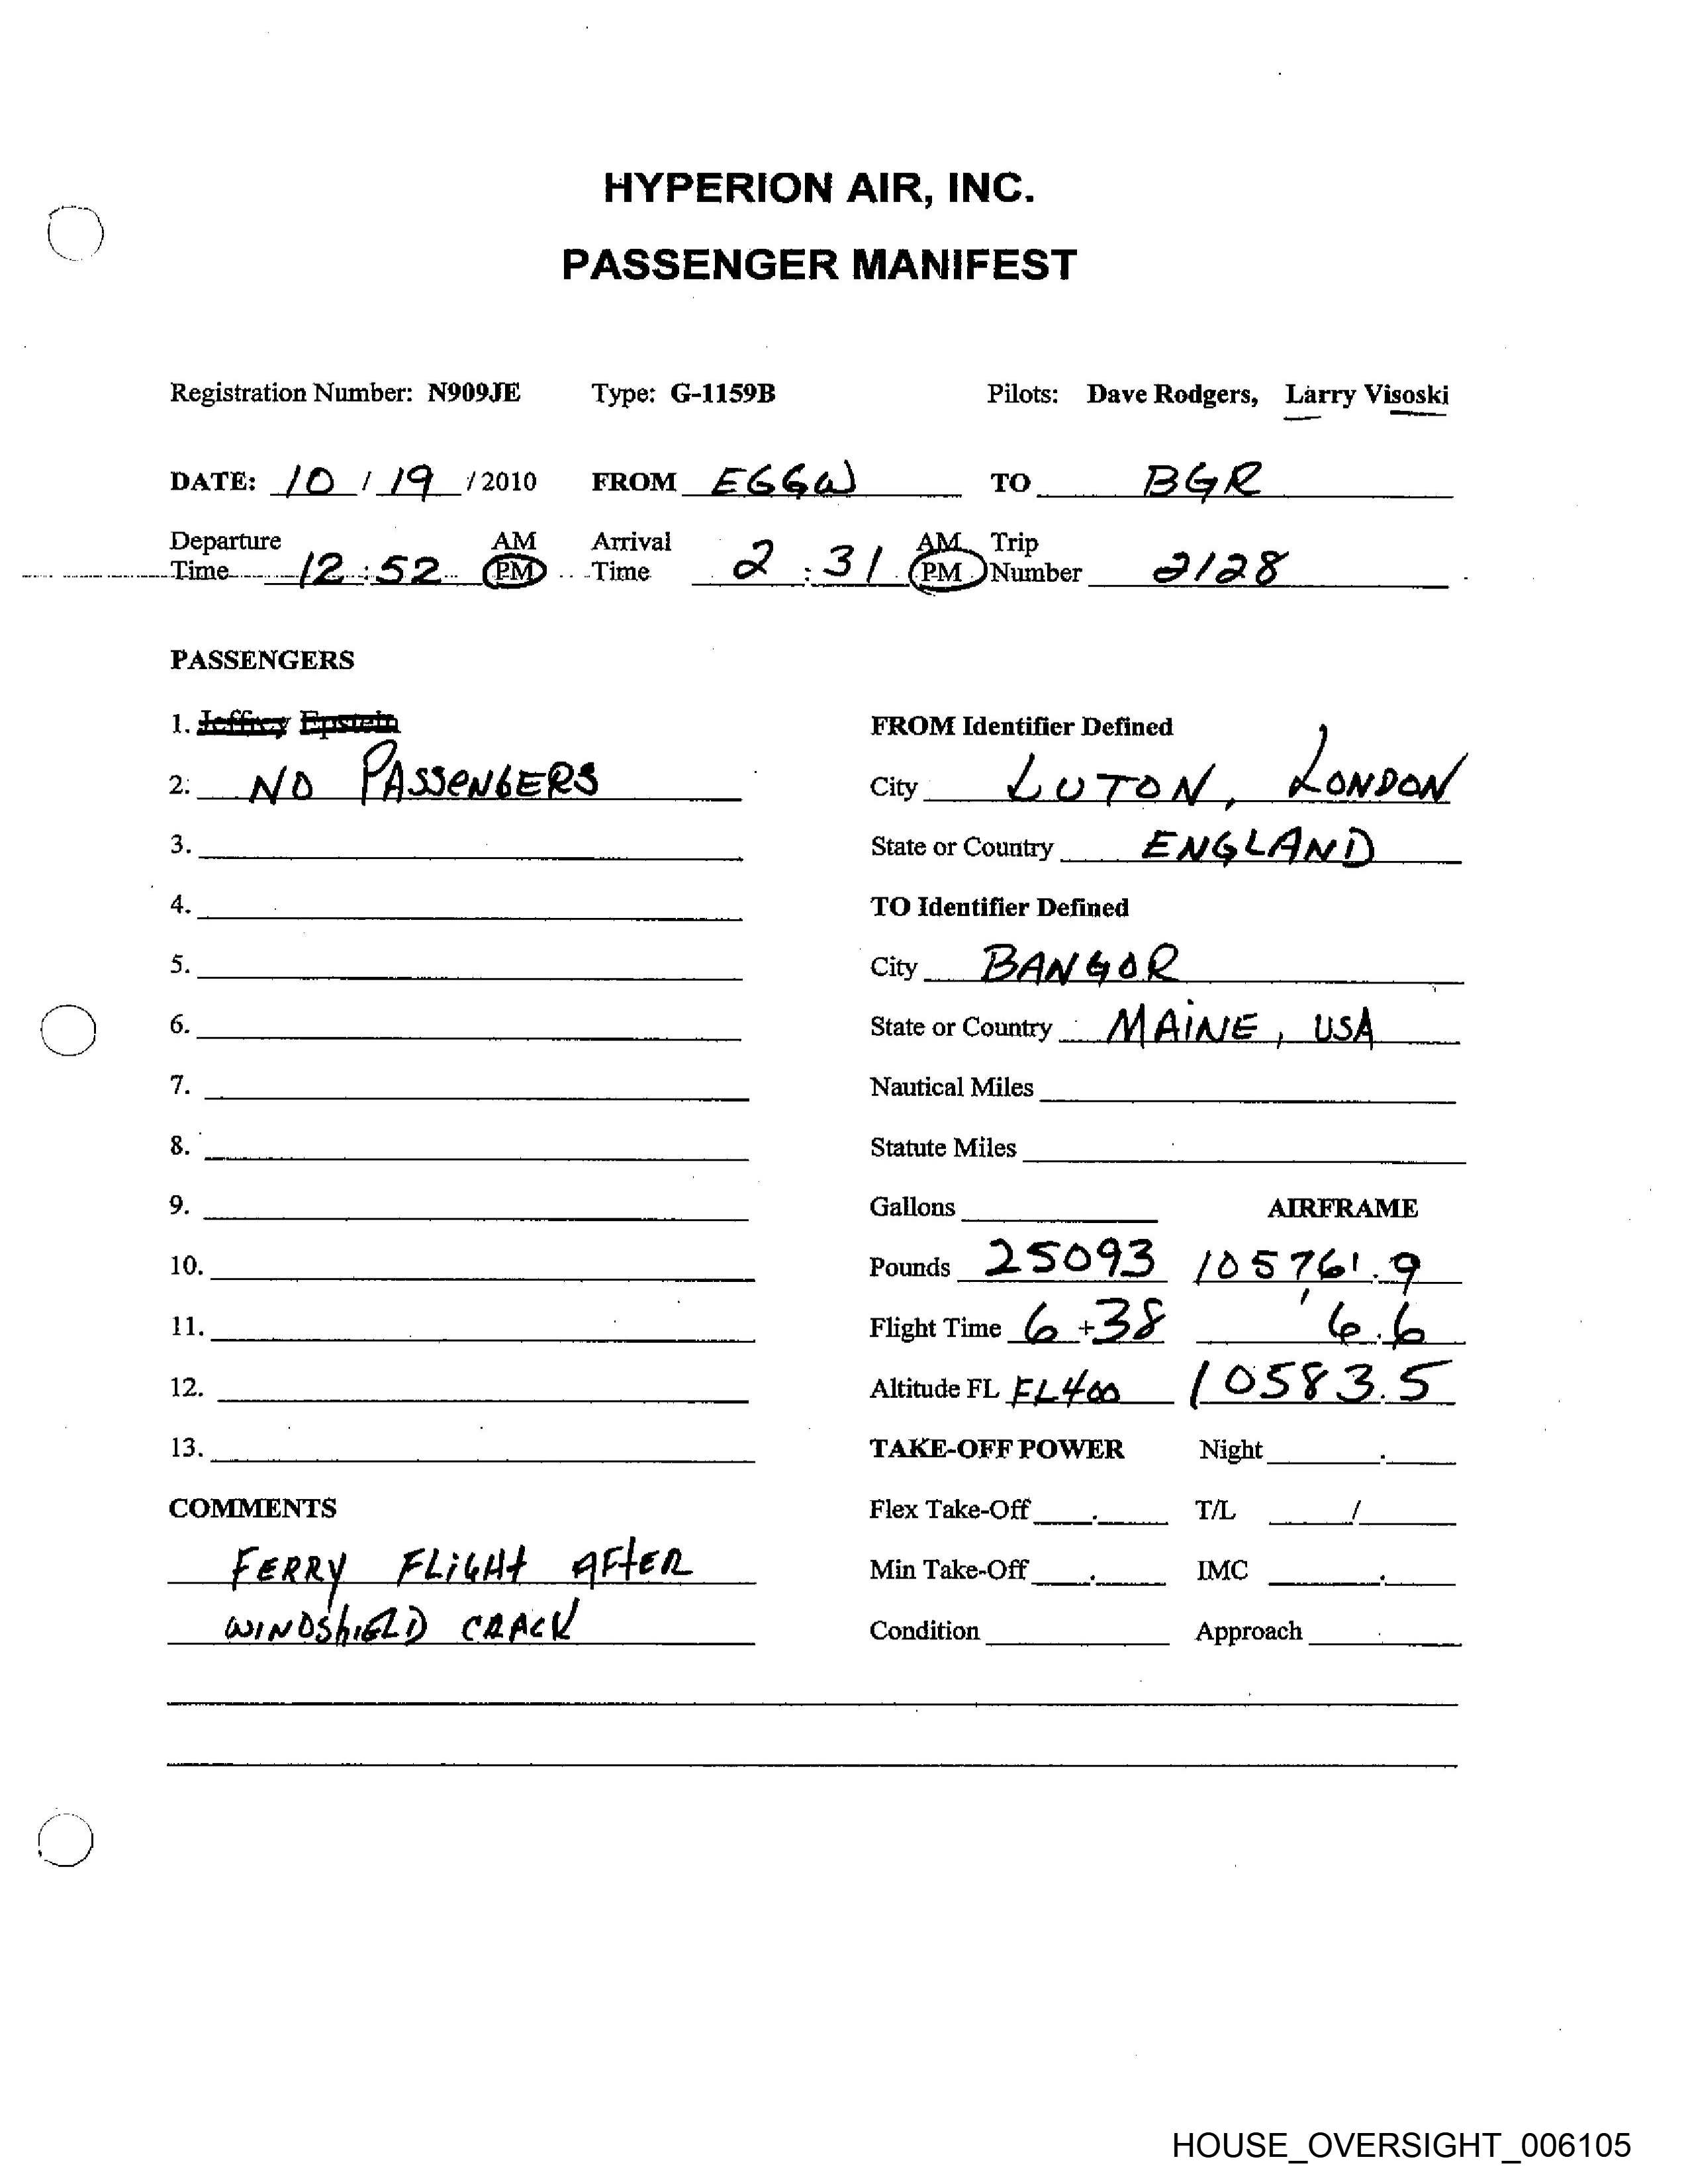 HYPERION AIR, INC.
PASSENGER MANIFEST
Registration Number: N909JE Type: G-1159B Pilots: Dave Rodgers, Larry Visoski
DATE: 10 / 19 / 2010 FROM EGGW TO BGR
Departure AM Arrival AM Trip
Time 12:52 PM Time 2:31 PM Number 2128
PASSENGERS
1. Jeffrey Epstein FROM Identifier Defined
2. NO PASSENGERS City LUTON, LONDON
3. State or Country ENGLAND
4. TO Identifier Defined
5. City BANGOR
6. State or Country MAINE, USA
7. Nautical Miles
8. Statute Miles
9. Gallons AIRFRAME
10. Pounds 25093 105761.9
11. Flight Time 6+38 6.6
12. Altitude FL FL400 10583.5
13. TAKE-OFF POWER Night
COMMENTS Flex Take-Off T/L /
FERRY FLIGHT AFTER Min Take-Off IMC
WINDSHIELD CRACK Condition Approach
HOUSE_OVERSIGHT_006105